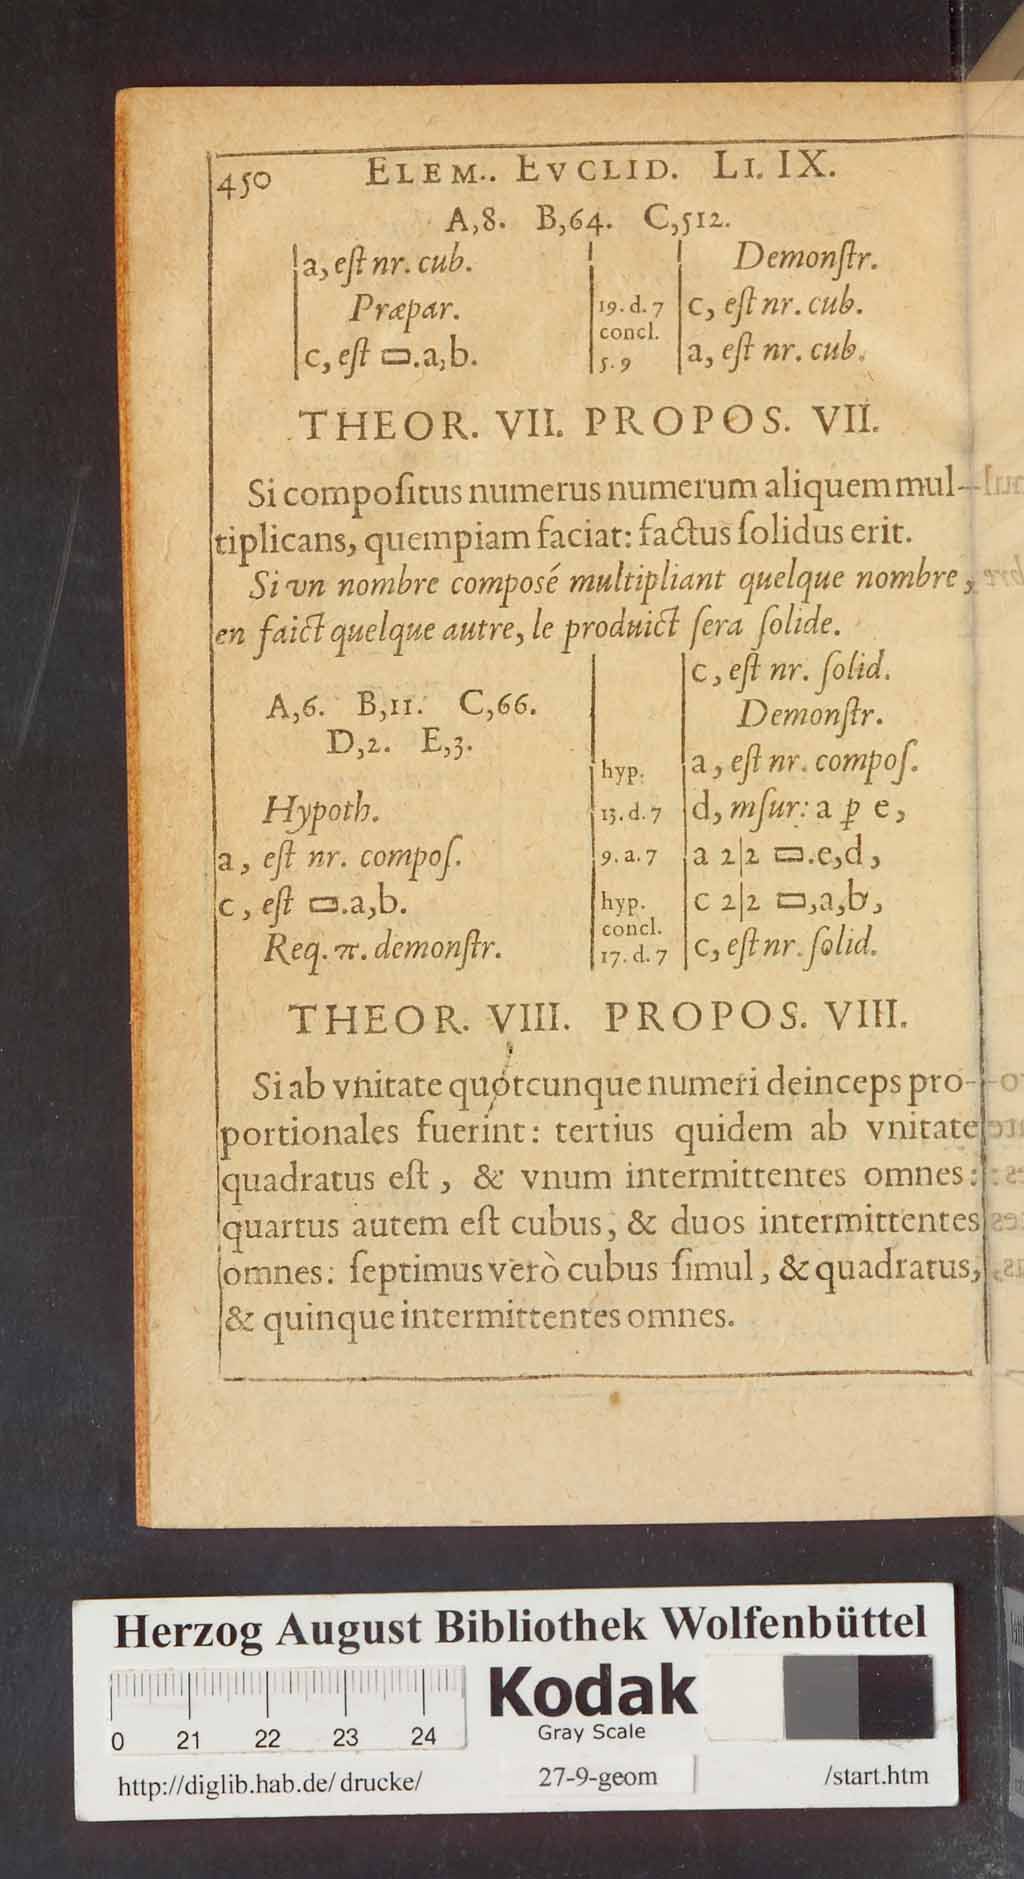 450 ELEM. EVCLID. LI. IX.
A,8. B,64. C,512.
a, eſt nr. cub.
Præpar.
c, eſt ▭.a,b.
Demonſtr.
19. d. 7 c, eſt nr. cub.
concl.
5. 9 a, eſt nr. cub.
THEOR. VII. PROPOS. VII.
Si compoſitus numerus numerum aliquem mul-
tiplicans, quempiam faciat: factus ſolidus erit.
Si vn nombre composé multipliant quelque nombre,
en faict quelque autre, le produict ſera ſolide.
A,6. B,11. C,66.
D,2. E,3.
Hypoth.
a, eſt nr. compoſ.
c, eſt ▭.a,b.
Req. π. demonſtr.
c, eſt nr. ſolid.
Demonſtr.
hyp. a, eſt nr. compoſ.
13. d. 7 d, mſur: a ꝑ e,
9. a. 7 a 2|2 ▭.e,d,
hyp. c 2|2 ▭,a,b,
concl.
17. d. 7 c, eſt nr. ſolid.
THEOR. VIII. PROPOS. VIII.
Si ab vnitate quotcunque numeri deinceps pro-
portionales fuerint: tertius quidem ab vnitate
quadratus eſt, & vnum intermittentes omnes:
quartus autem eſt cubus, & duos intermittentes
omnes: ſeptimus verò cubus ſimul, & quadratus,
& quinque intermittentes omnes.
Herzog August Bibliothek Wolfenbüttel
Kodak
Gray Scale
0 21 22 23 24
http://diglib.hab.de/drucke/ 27-9-geom /start.htm